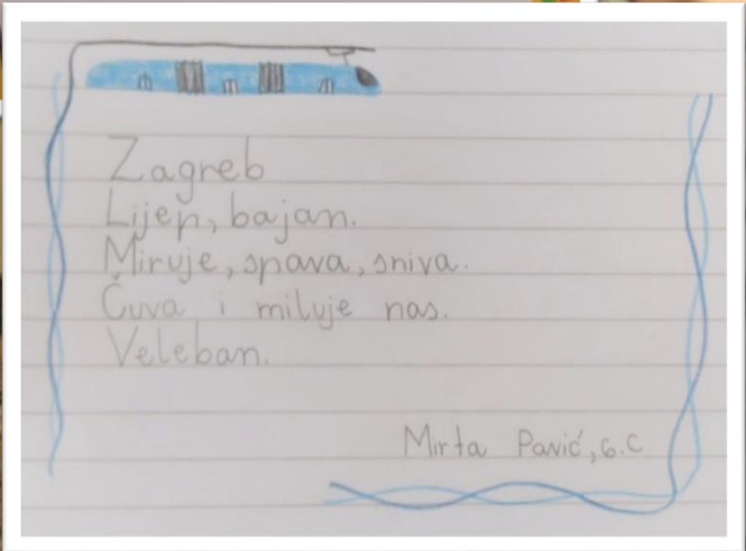 Zagreb
Lijep, bajan.
Miruje, spava, sniva.
Čuva i miluje nas.
Veleban.
Mirta Pavić, 6.c